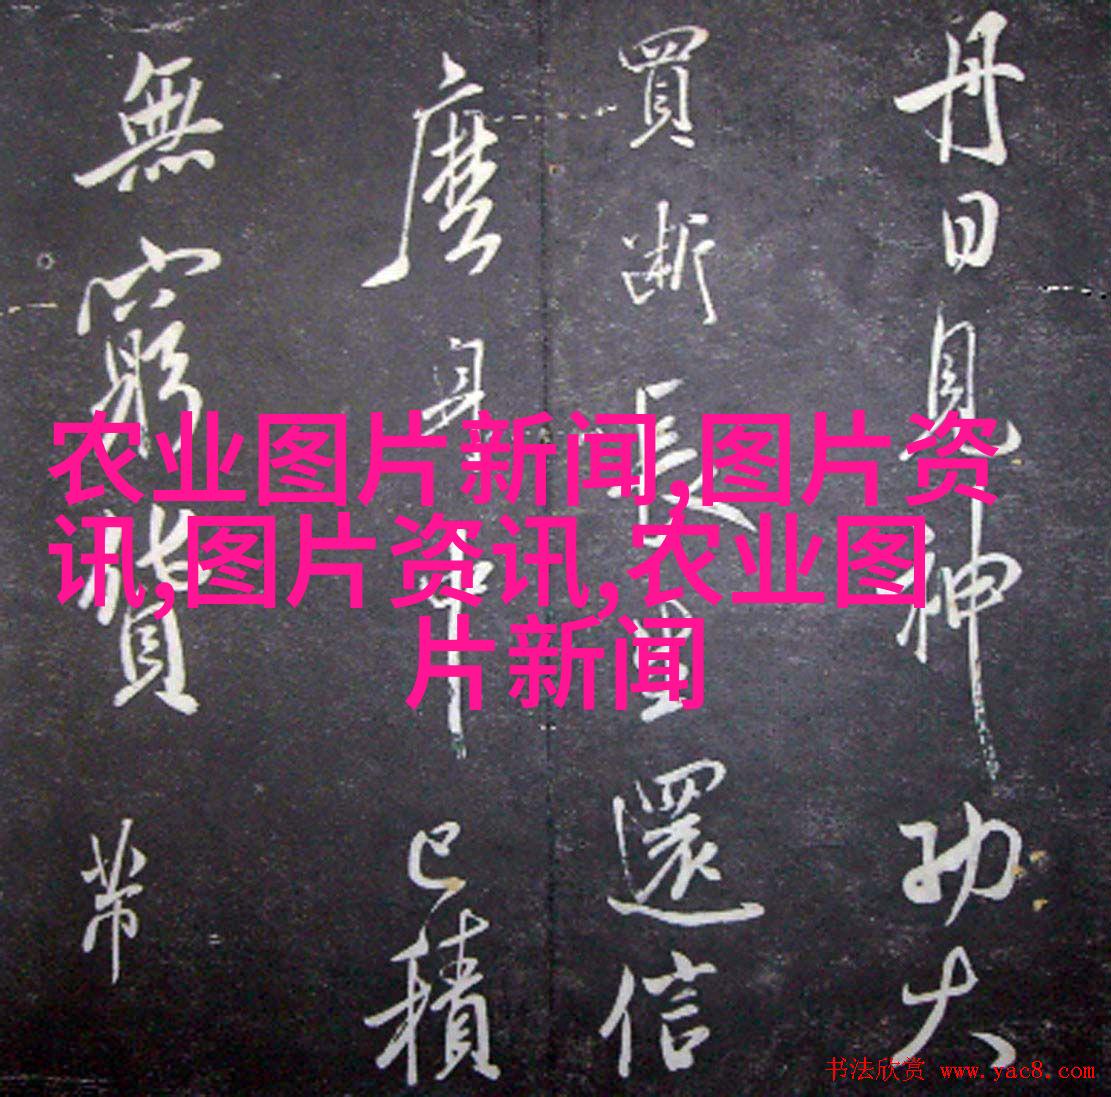 丹日見神功大
買斷長
還信
麼身中已積
無窮貲帶
农业图片新闻,图片资
讯,图片资讯,农业图
片新闻
书法欣赏 www.yac8.com